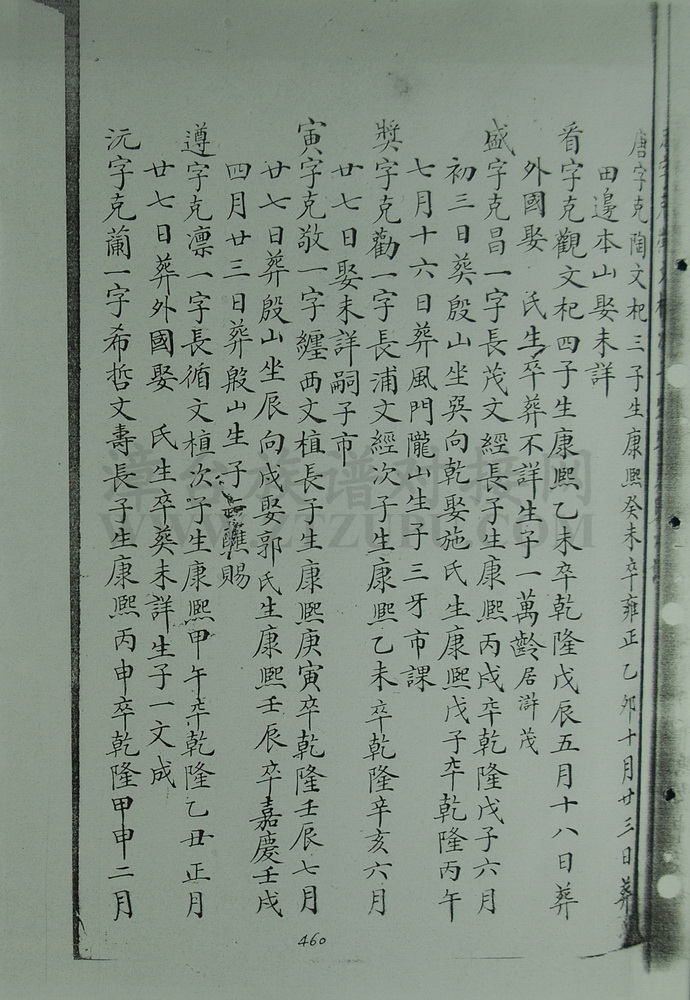 唐字克陶文杞三子生康熙癸未卒雍正乙卯十月廿三日葬
田邊本山娶未詳
看字克觀文杞四子生康熙乙未卒乾隆戊辰五月十八日葬
外國娶 氏生卒葬不詳生子一萬齡居滸茂
盛字克昌一字長茂文經長子生康熙丙戌卒乾隆戊子六月
初三日葬殷山坐巽向乾娶施氏生康熙戊子卒乾隆丙午
七月十六日葬風門隴山生子三牙市課
獎字克勸一字長浦文經次子生康熙乙未卒乾隆辛亥六月
廿七日娶未詳嗣子市
寅字克敬一字纏西文植長子生康熙庚寅卒乾隆壬辰七月
廿七日葬殷山坐辰向戌娶郭氏生康熙壬辰卒嘉慶壬戌
四月廿三日葬殷山生子 賜
遵字克凛一字長循文植次子生康熙甲午卒乾隆乙丑正月
廿七日葬外國娶 氏生卒葬未詳生子一文成
沅字克蘭一字希哲文壽長子生康熙丙申卒乾隆甲申二月
460